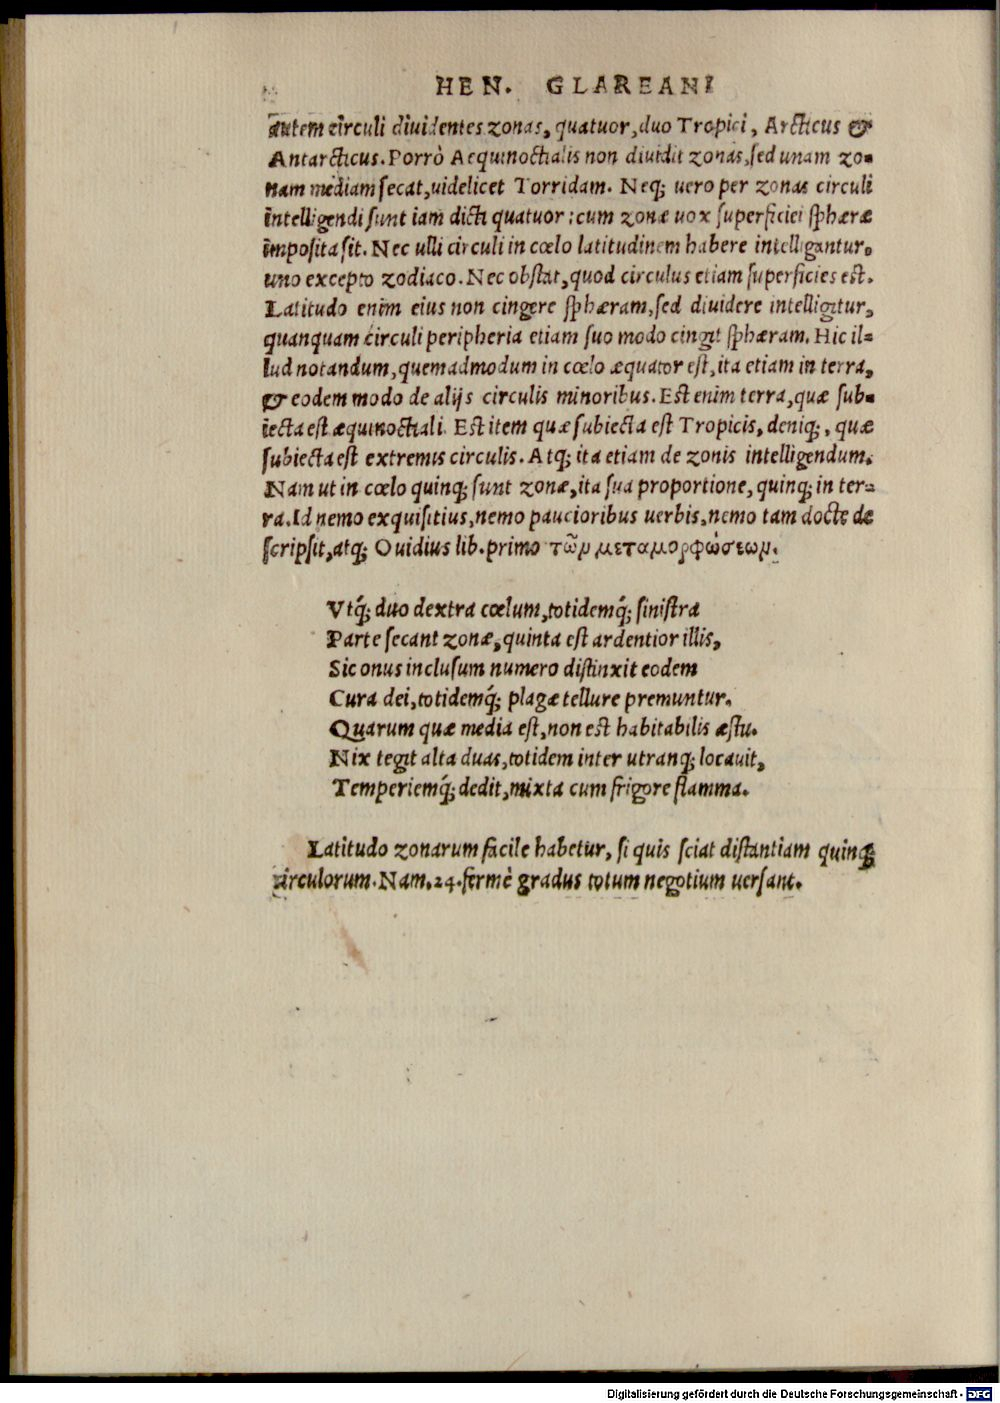 HEN. GLAREANI
autem circuli diuidentes zonas, quatuor, duo Tropici, Arcticus &
Antarcticus. Porrò Aequinoctialis non diuidit zonas, sed unam zo-
nam mediam secat, uidelicet Torridam. Neq; uero per zonas circuli
intelligendi sunt iam dicti quatuor: cum zonæ uox superficiei sphæræ
imposita sit. Nec ulli circuli in cœlo latitudinem habere intelligantur,
uno excepto zodiaco. Nec obstat, quod circulus etiam superficies est.
Latitudo enim eius non cingere sphæram, sed diuidere intelligitur,
quanquam circuli peripheria etiam suo modo cingit sphæram. Hic il-
lud notandum, quemadmodum in cœlo æquator est, ita etiam in terra,
& eodem modo de alijs circulis minoribus. Est enim terra, quæ sub-
iecta est æquinoctiali. Est item quæ subiecta est Tropicis, deniq;, quæ
subiecta est extremis circulis. Atq; ita etiam de zonis intelligendum.
Nam ut in cœlo quinq; sunt zonæ, ita sua proportione, quinq; in ter-
ra. Id nemo exquisitius, nemo paucioribus uerbis, nemo tam docte de
scripsit, atq; Ouidius lib. primo τῶν μεταμορφώσεων.
Vtq́; duo dextra cœlum, totidemq́; sinistra
Parte secant zonæ, quinta est ardentior illis,
Sic onus inclusum numero distinxit eodem
Cura dei, totidemq́; plagæ tellure premuntur.
Quarum quæ media est, non est habitabilis æstu.
Nix tegit alta duas, totidem inter utranq; locauit,
Temperiemq́; dedit, mixta cum frigore flamma.
Latitudo zonarum facile habetur, si quis sciat distantiam quinq;
circulorum. Nam. 24. fermè gradus totum negotium uersant.
Digitalisierung gefördert durch die Deutsche Forschungsgemeinschaft - DFG